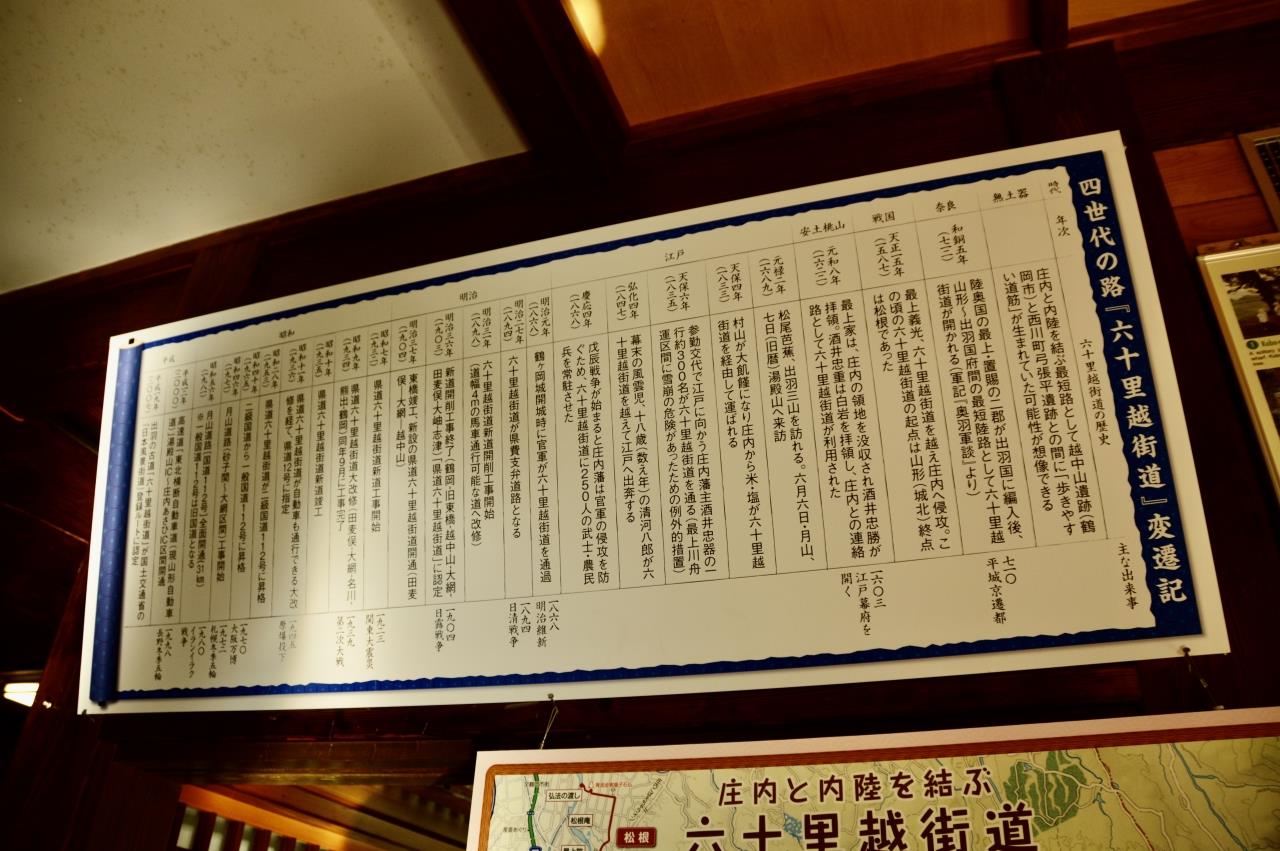 四世代の路『六十里越街道』変遷記
時代
年次
六十里越街道の歴史
主な出来事
無土器
庄内と内陸を結ぶ最短路として越中山遺跡(鶴
岡市)と西川町弓張平遺跡との間に「歩きやす
い道筋」が生まれていた可能性が想像できる
奈良
和銅五年
(七一二)
陸奥国の最上置賜の二郡が出羽国に編入後、
山形〜出羽国府間の最短陸路として六十里越
街道が開かれる(軍記「奥羽軍談」より)
七一〇
平城京遷都
戦国
天正一五年
(一五八七)
最上義光、六十里越街道を越え庄内へ侵攻。こ
の頃の六十里越街道の起点は山形(城北)終点
は松根であった
安土桃山
元和八年
(一六二二)
最上家は、庄内の領地を没収され酒井忠勝が
拝領。酒井忠重は白岩を拝領し、庄内との連絡
路として六十里越街道が利用された
一六〇三
江戸幕府を
開く
江戸
元禄二年
(一六八九)
松尾芭蕉、出羽三山を訪れる。六月六日・月山、
七日(旧暦)湯殿山へ来訪
天保四年
(一八三三)
村山が大飢饉になり庄内から米・塩が六十里越
街道を経由して運ばれる
天保六年
(一八三五)
参勤交代で江戸に向かう庄内藩主酒井忠器の一
行約300名が六十里越街道を通る(最上川舟
運区間に雪崩の危険があったための例外的措置)
弘化四年
(一八四七)
幕末の風雲児、十八歳(数え年)の清河八郎が六
十里越街道を越えて江戸へ出奔する
慶応四年
(一八六八)
戊辰戦争が始まると庄内藩は官軍の侵攻を防
ぐため、六十里越街道に250人の武士・農民
兵を常駐させた
明治
明治元年
(一八六八)
鶴ヶ岡城開城時に官軍が六十里越街道を通過
一八六八
明治維新
明治二七年
(一八九四)
六十里越街道が県費支弁道路となる
一八九四
日清戦争
六十里越街道新道開削工事開始
(道幅4mの馬車通行可能な道へ改修)
明治三六年
(一九〇三)
新道開削工事終了(鶴岡・旧東橋・越中山・大網・
田麦俣・大岫・志津)「県道六十里越街道」に認定
一九〇四
日露戦争
明治三七年
(一九〇四)
東橋竣工、新設の県道六十里越街道開通(田麦
俣・大網・越中山)
昭和
昭和七年
(一九三二)
県道六十里越街道新道工事開始
一九二三
関東大震災
昭和九年
(一九三四)
県道六十里越街道大改修(田麦俣・大網・名川・
熊出・鶴岡)同年9月に工事完了
一九三九
第二次大戦
昭和十年
(一九三五)
県道六十里越街道新道竣工
昭和十一年
(一九三六)
県道六十里越街道が自動車も通行できる大改
修を経て、県道12号に指定
一九四五
原爆投下
県道六十里越街道が二級国道112号に昇格
昭和四十年
(一九六五)
二級国道から一般国道112号に昇格
一九七〇
大阪万博
月山道路(砂子関〜大網区間)工事開始
一九七二
札幌冬季五輪
昭和五六年
(一九八一)
月山道路(国道112号)全面開通(31km)
※一般国道112号は旧国道となる
一九八〇
イラン・イラク
戦争
平成
平成一二年
(二〇〇〇)
高速道「東北横断自動車道」(現山形自動車
道)湯殿山IC〜庄内あさひIC区間開通
一九九八
長野冬季五輪
平成一九年
(二〇〇七)
出羽の古道「六十里越街道」が国土交通省の
「日本風景街道」登録ルートに認定
庄内と内陸を結ぶ
六十里越街道
弘法の渡し
松根庵
松根